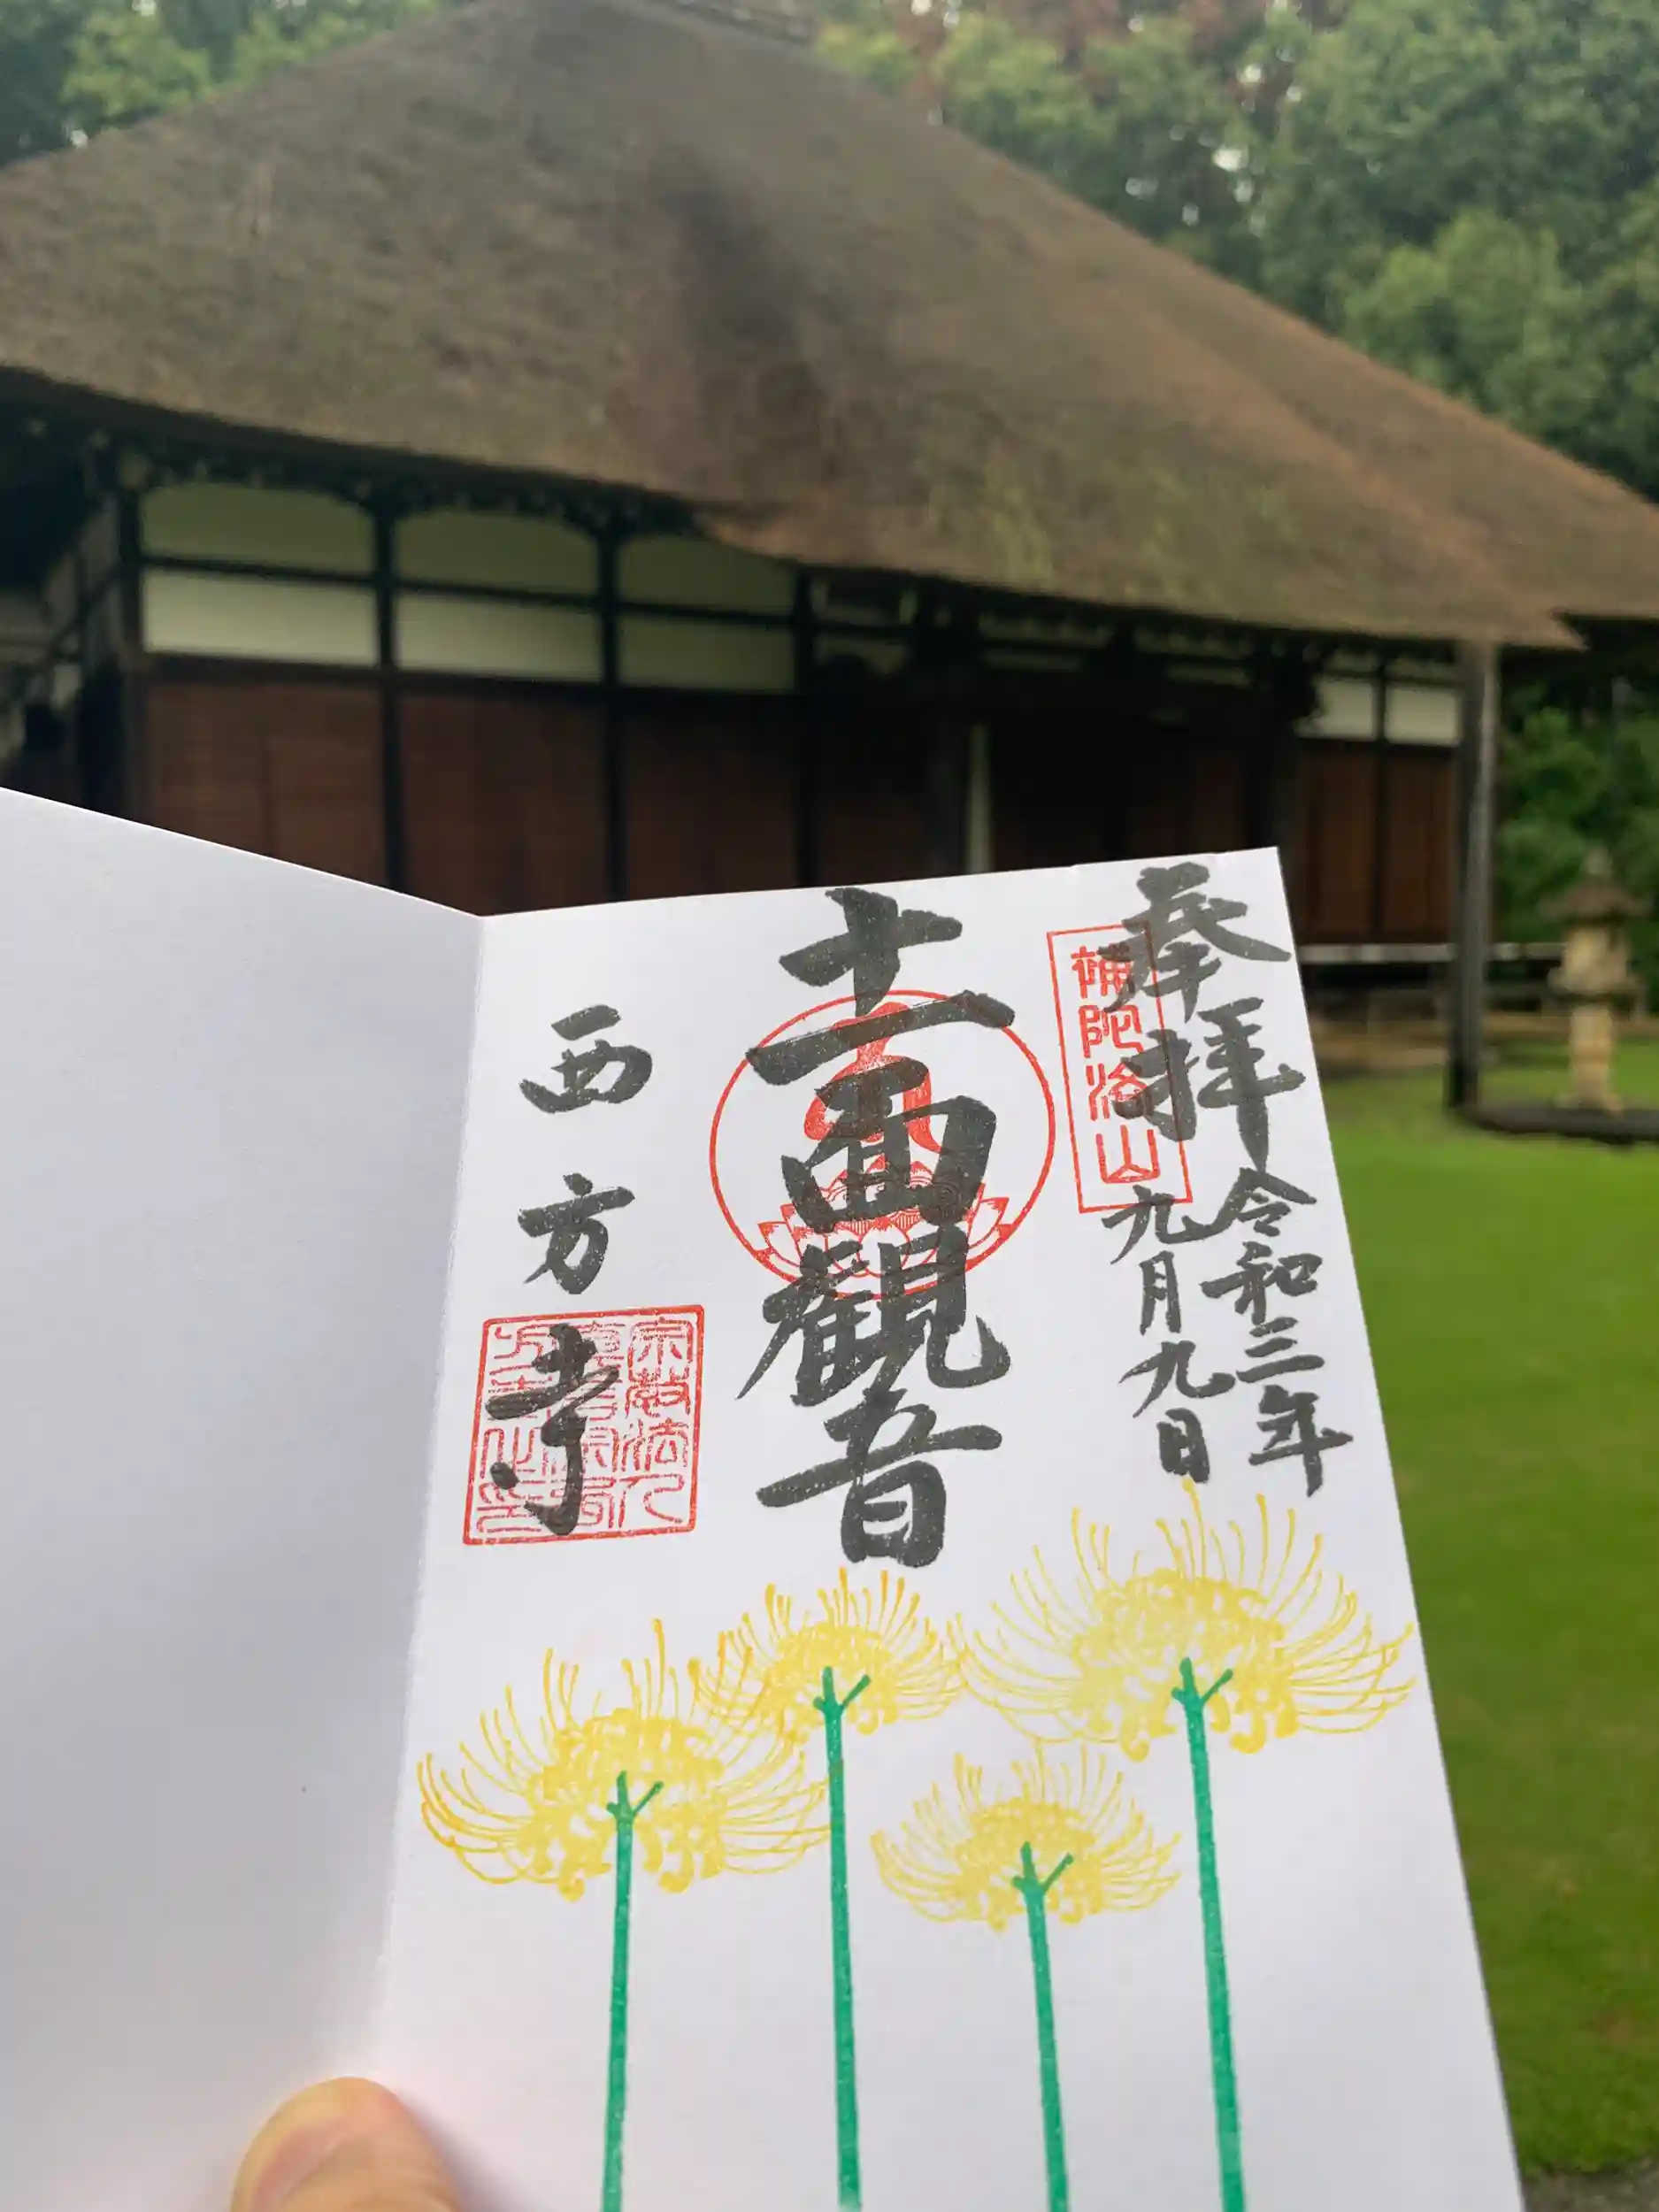 奉拝
令和三年
九月九日
補陀洛山
十一面観音
西方寺